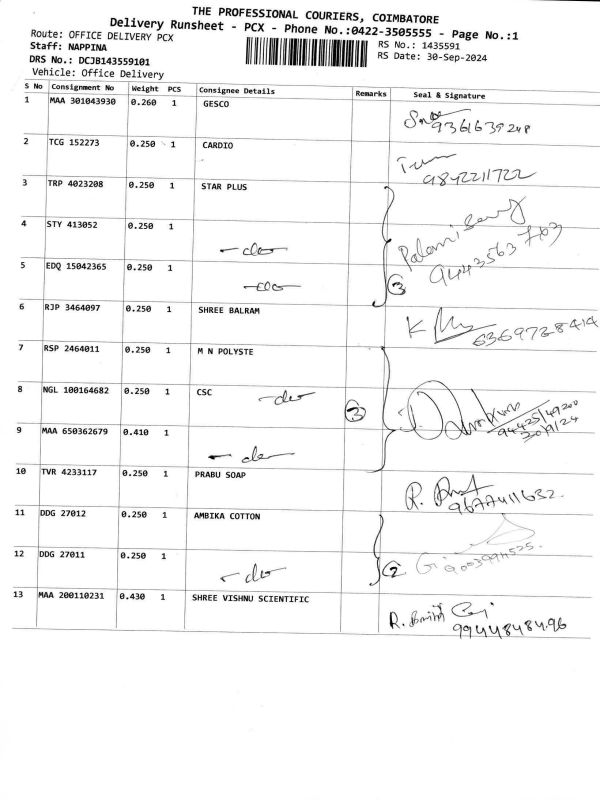 THE PROFESSIONAL COURIERS, COIMBATORE
Delivery Runsheet - PCX - Phone No.:0422-3505555 - Page No.:1
Route: OFFICE DELIVERY PCX
RS No.: 1435591
Staff: NAPPINA
RS Date: 30-Sep-2024
DRS No.: DCJB143559101
Vehicle: Office Delivery
S No Consignment No Weight PCS Consignee Details Remarks Seal & Signature
1 MAA 301043930 0.260 1 GESCO
9361639248
2 TCG 152273 0.250 1 CARDIO
9842211722
3 TRP 4023208 0.250 1 STAR PLUS
4 STY 413052 0.250 1
- do -
9443563703
5 EDQ 15042365 0.250 1
- do -
3
6 RJP 3464097 0.250 1 SHREE BALRAM
K
6369728414
7 RSP 2464011 0.250 1 M N POLYSTE
8 NGL 100164682 0.250 1 CSC - do
3
94425/49200
30/9/24
9 MAA 650362679 0.410 1
- do -
10 TVR 4233117 0.250 1 PRABU SOAP
R.
9677411632.
11 DDG 27012 0.250 1 AMBIKA COTTON
12 DDG 27011 0.250 1
- do
2
9003991525.
13 MAA 200110231 0.430 1 SHREE VISHNU SCIENTIFIC
R.
9944848496